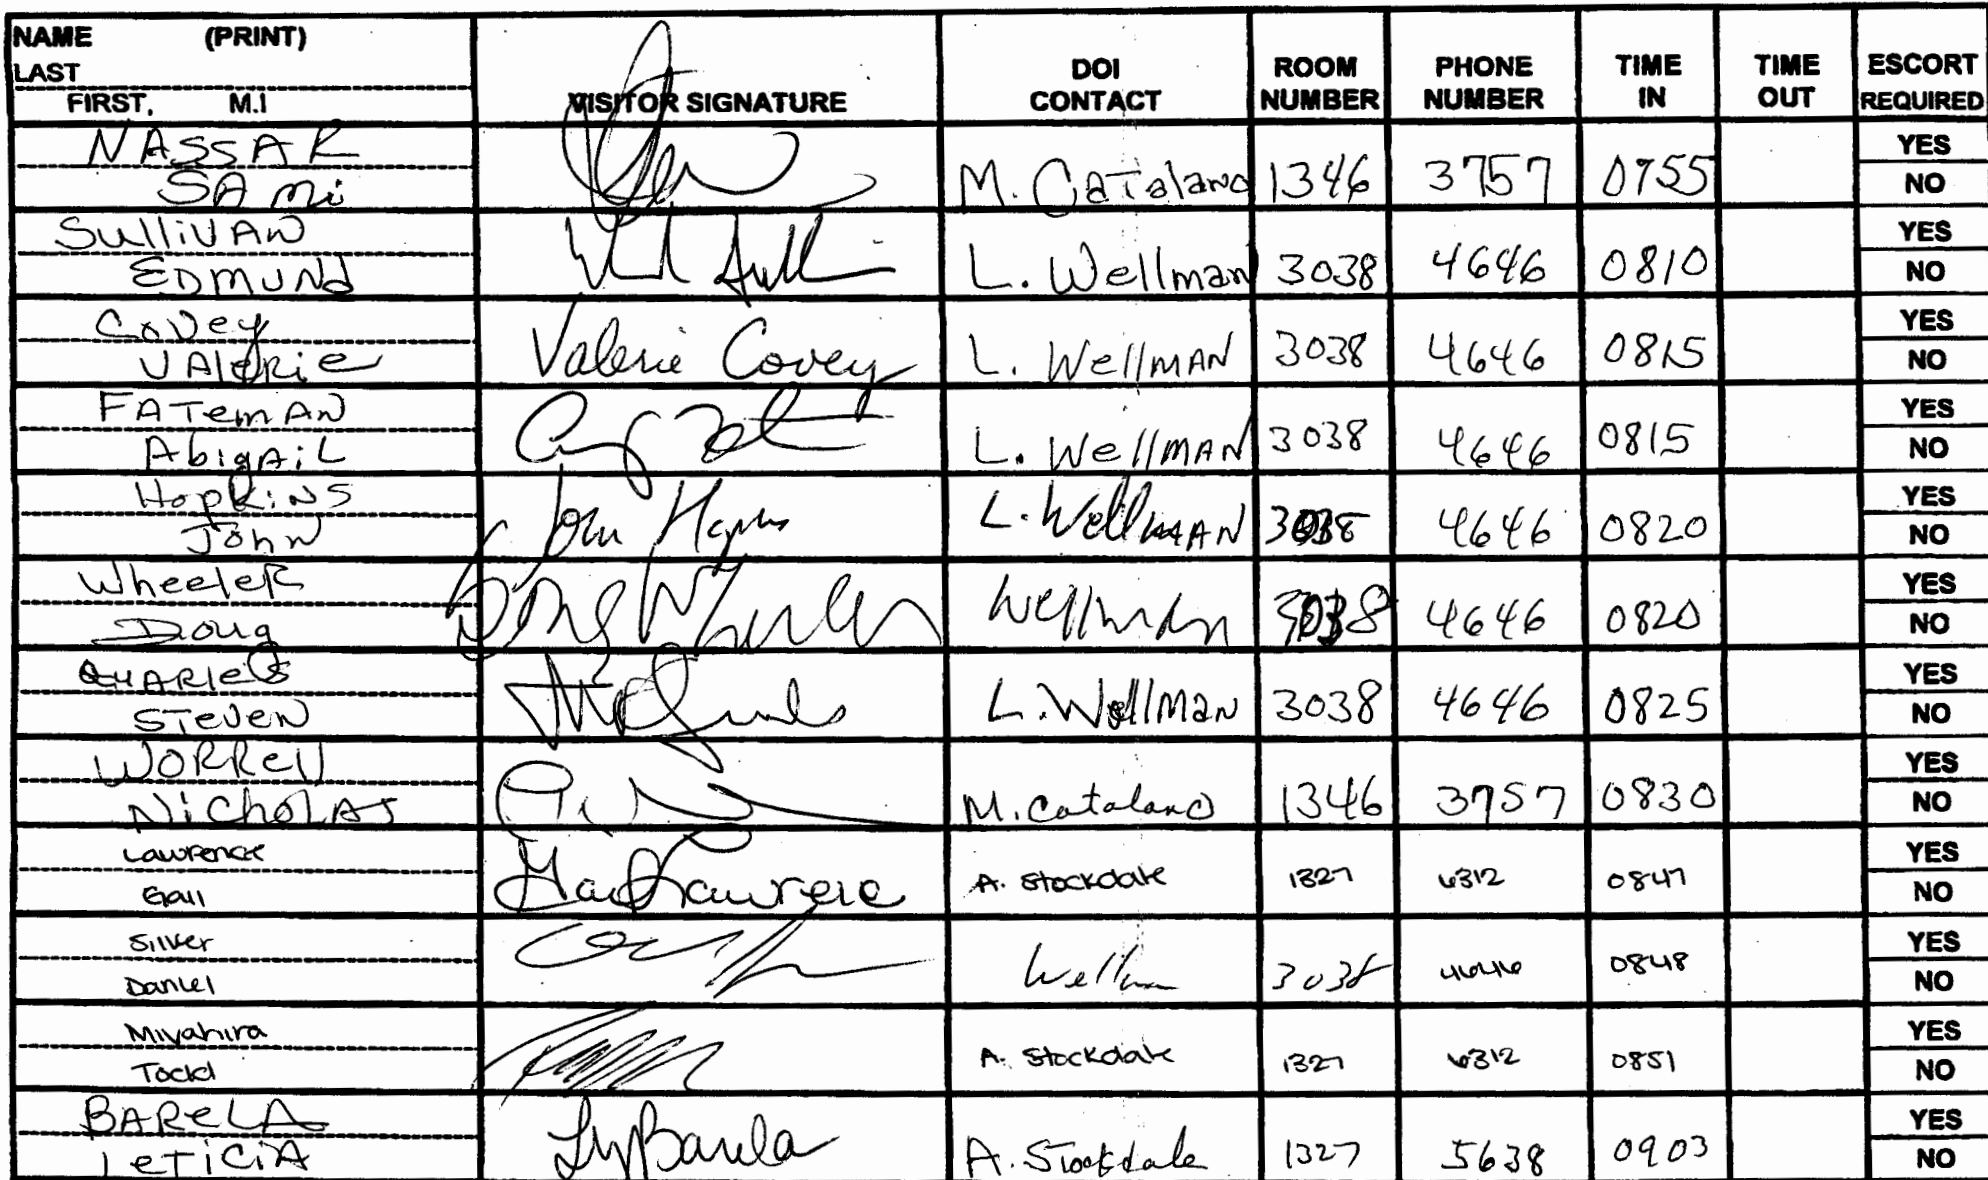 NAME (PRINT)
LAST
FIRST, M.I
VISITOR SIGNATURE
DOI CONTACT
ROOM NUMBER
PHONE NUMBER
TIME IN
TIME OUT
ESCORT REQUIRED
NASSAR
SAMi
M. CaTalano 1346 3757 0755
YES
NO
SulliVAN
EDMUNd
L. Wellman 3038 4646 0810
YES
NO
CoVey
VAlerie
Valerie Covey L. WellMAN 3038 4646 0815
YES
NO
FATemAN
AbigAiL
L. WellMAN 3038 4646 0815
YES
NO
HopkiNS
JohN
John L. WellMAN 3038 4646 0820
YES
NO
WheeleR
Doug
Doug Wheeler Wellman 3038 4646 0820
YES
NO
QuARleS
STeVeN
L. WellMaN 3038 4646 0825
YES
NO
WORRell
NicholAs
M. Catalano 1346 3757 0830
YES
NO
Lawrence
Gail
Gail Lawrence A. Stockdale 1327 6312 0847
YES
NO
Silver
Daniel
Wellman 3038 4646 0848
YES
NO
Miyahira
Todd
A. Stockdale 1327 6312 0851
YES
NO
BAReLA
LeTiCiA
Barela A. Stockdale 1327 5638 0903
YES
NO